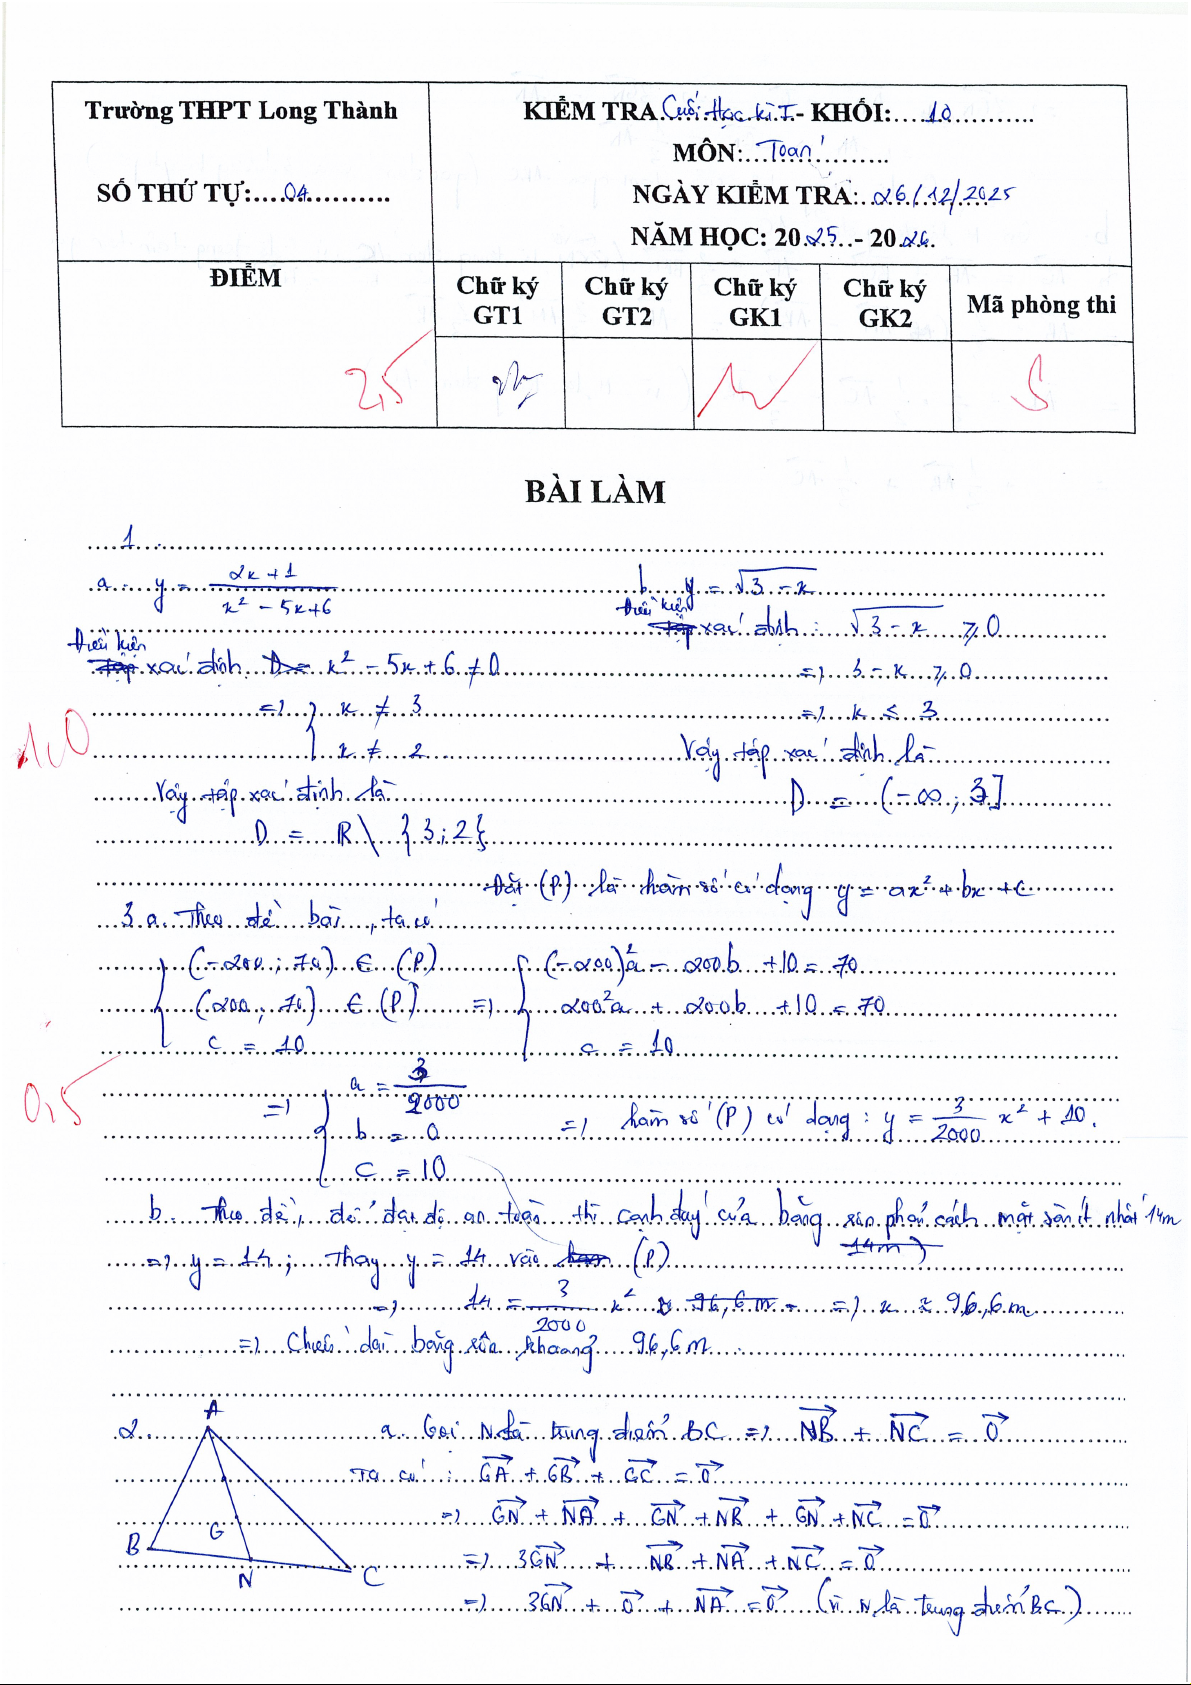 Trường THPT Long Thành
SỐ THỨ TỰ:.....04..................
KIỂM TRA Cuối Học kì I - KHỐI:.....10............
MÔN:...Toán..........
NGÀY KIỂM TRA: 26/12/2025
NĂM HỌC: 2025 - 2026.
ĐIỂM
Chữ ký GT1
Chữ ký GT2
Chữ ký GK1
Chữ ký GK2
Mã phòng thi
2,5
BÀI LÀM
1
a. y = \frac{2x+1}{x² - 5x+6}
b. y = √(3 - x)
Điều kiện xác định x² - 5x + 6 ≠ 0
Điều kiện xác định : √(3 - x) ≥ 0
=> 3 - x ≥ 0
=> { x ≠ 3
x ≠ 2
=> x ≤ 3
1,0
Vậy tập xác định là
D = R \ {3; 2}
Vậy tập xác định là
D = (-∞; 3]
Đặt (P) là hàm số có dạng y = ax² + bx + c
3.a. Theo đề bài, ta có
{ (-200; 70) ∈ (P)
(200; 70) ∈ (P)
c = 10
=> { (-200)²a - 200b + 10 = 70
200²a + 200b + 10 = 70
c = 10
0,5
=> { a = \frac{3}{2000}
b = 0
c = 10
=> hàm số (P) có dạng : y = \frac{3}{2000} x² + 10.
b. Theo đề, để đạt độ an toàn thì cạnh đáy của bảng xôn phải cách mặt sàn ít nhất 14m
=> y = 14; Thay y = 14 vào (P)
=> 14 = \frac{3}{2000} x² => x ≈ 96,6 m.
=> Chiều dài bằng xôn khoảng 96,6 m.
2.
A
B
G
N
C
a. Gọi N là trung điểm BC => \vec{NB} + \vec{NC} = \vec{0}
Ta có : \vec{GA} + \vec{GB} + \vec{GC} = \vec{0}
=> \vec{GN} + \vec{NA} + \vec{GN} + \vec{NB} + \vec{GN} + \vec{NC} = \vec{0}
=> 3\vec{GN} + \vec{NB} + \vec{NA} + \vec{NC} = \vec{0}
=> 3\vec{GN} + \vec{0} + \vec{NA} = \vec{0} (vì N là trung điểm BC)